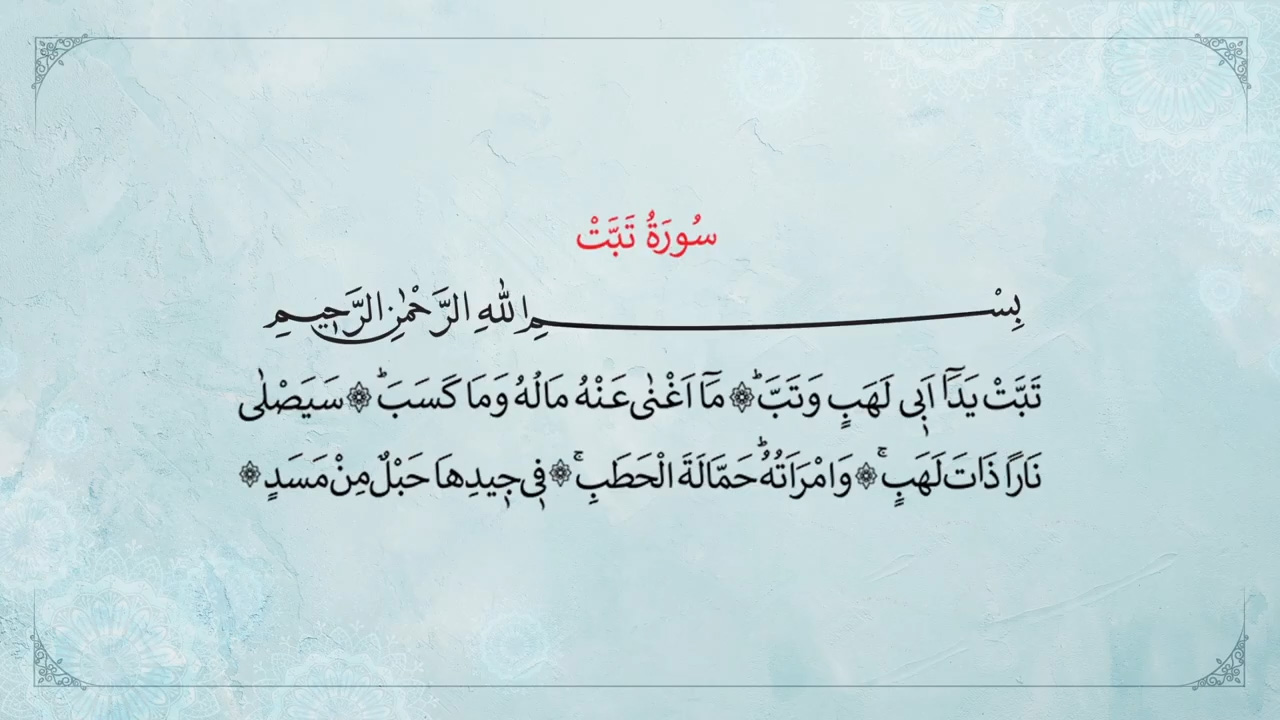 سُورَةُ تَبَّتْ
بِسْمِ اللّٰهِ الرَّحْمٰنِ الرَّحِيمِ
تَبَّتْ يَدَٓا اَبٖى لَهَبٍ وَتَبَّۜ ۞ مَٓا اَغْنٰى عَنْهُ مَالُهُ وَمَا كَسَبَۜ ۞ سَيَصْلٰى
نَارًا ذَاتَ لَهَبٍۚ ۞ وَامْرَاَتُهُۜ حَمَّالَةَ الْحَطَبِۚ ۞ فٖى جٖيدِهَا حَبْلٌ مِنْ مَسَدٍ ۞